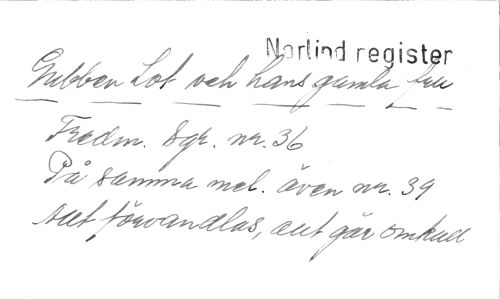 Norlind register
Gubben Lot och hans gamla fru
Fredm. Sgr. nr. 36
På samma mel. även nr. 39
Allt förvandlas, allt går omkull